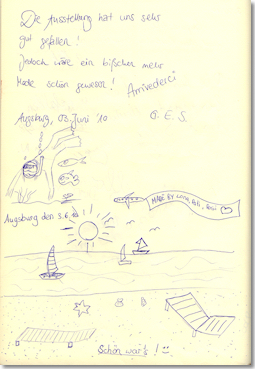 Die Ausstellung hat uns sehr
gut gefallen!
Jedoch wäre ein bißchen mehr
Mode schön gewesen!
Arrivederci
Augsburg, 03. Juni '10
G. E. S.
MADE BY
Augsburg den 3.6.10
Schön war's!